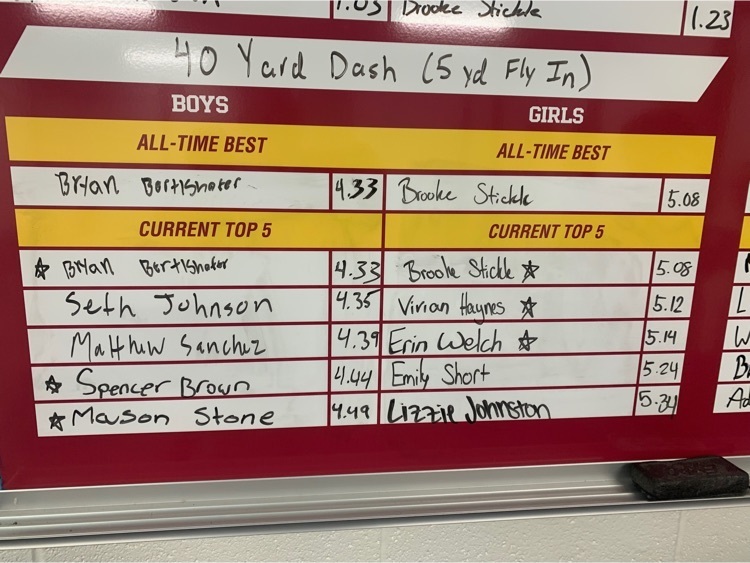 1.03 Brooke Stickle 1.23
40 Yard Dash (5 yd Fly In)
BOYS GIRLS
ALL-TIME BEST ALL-TIME BEST
Bryan 4.33 Brooke Stickle 5.08
CURRENT TOP 5 CURRENT TOP 5
☆ Bryan 4.33 Brooke Stickle ☆ 5.08
Seth Johnson 4.35 Vivian Haynes ☆ 5.12
Matthew Sanchez 4.39 Erin Welch ☆ 5.14
☆ Spencer Brown 4.44 Emily Short 5.24
☆ Mauson Stone 4.49 Lizzie Johnston 5.34